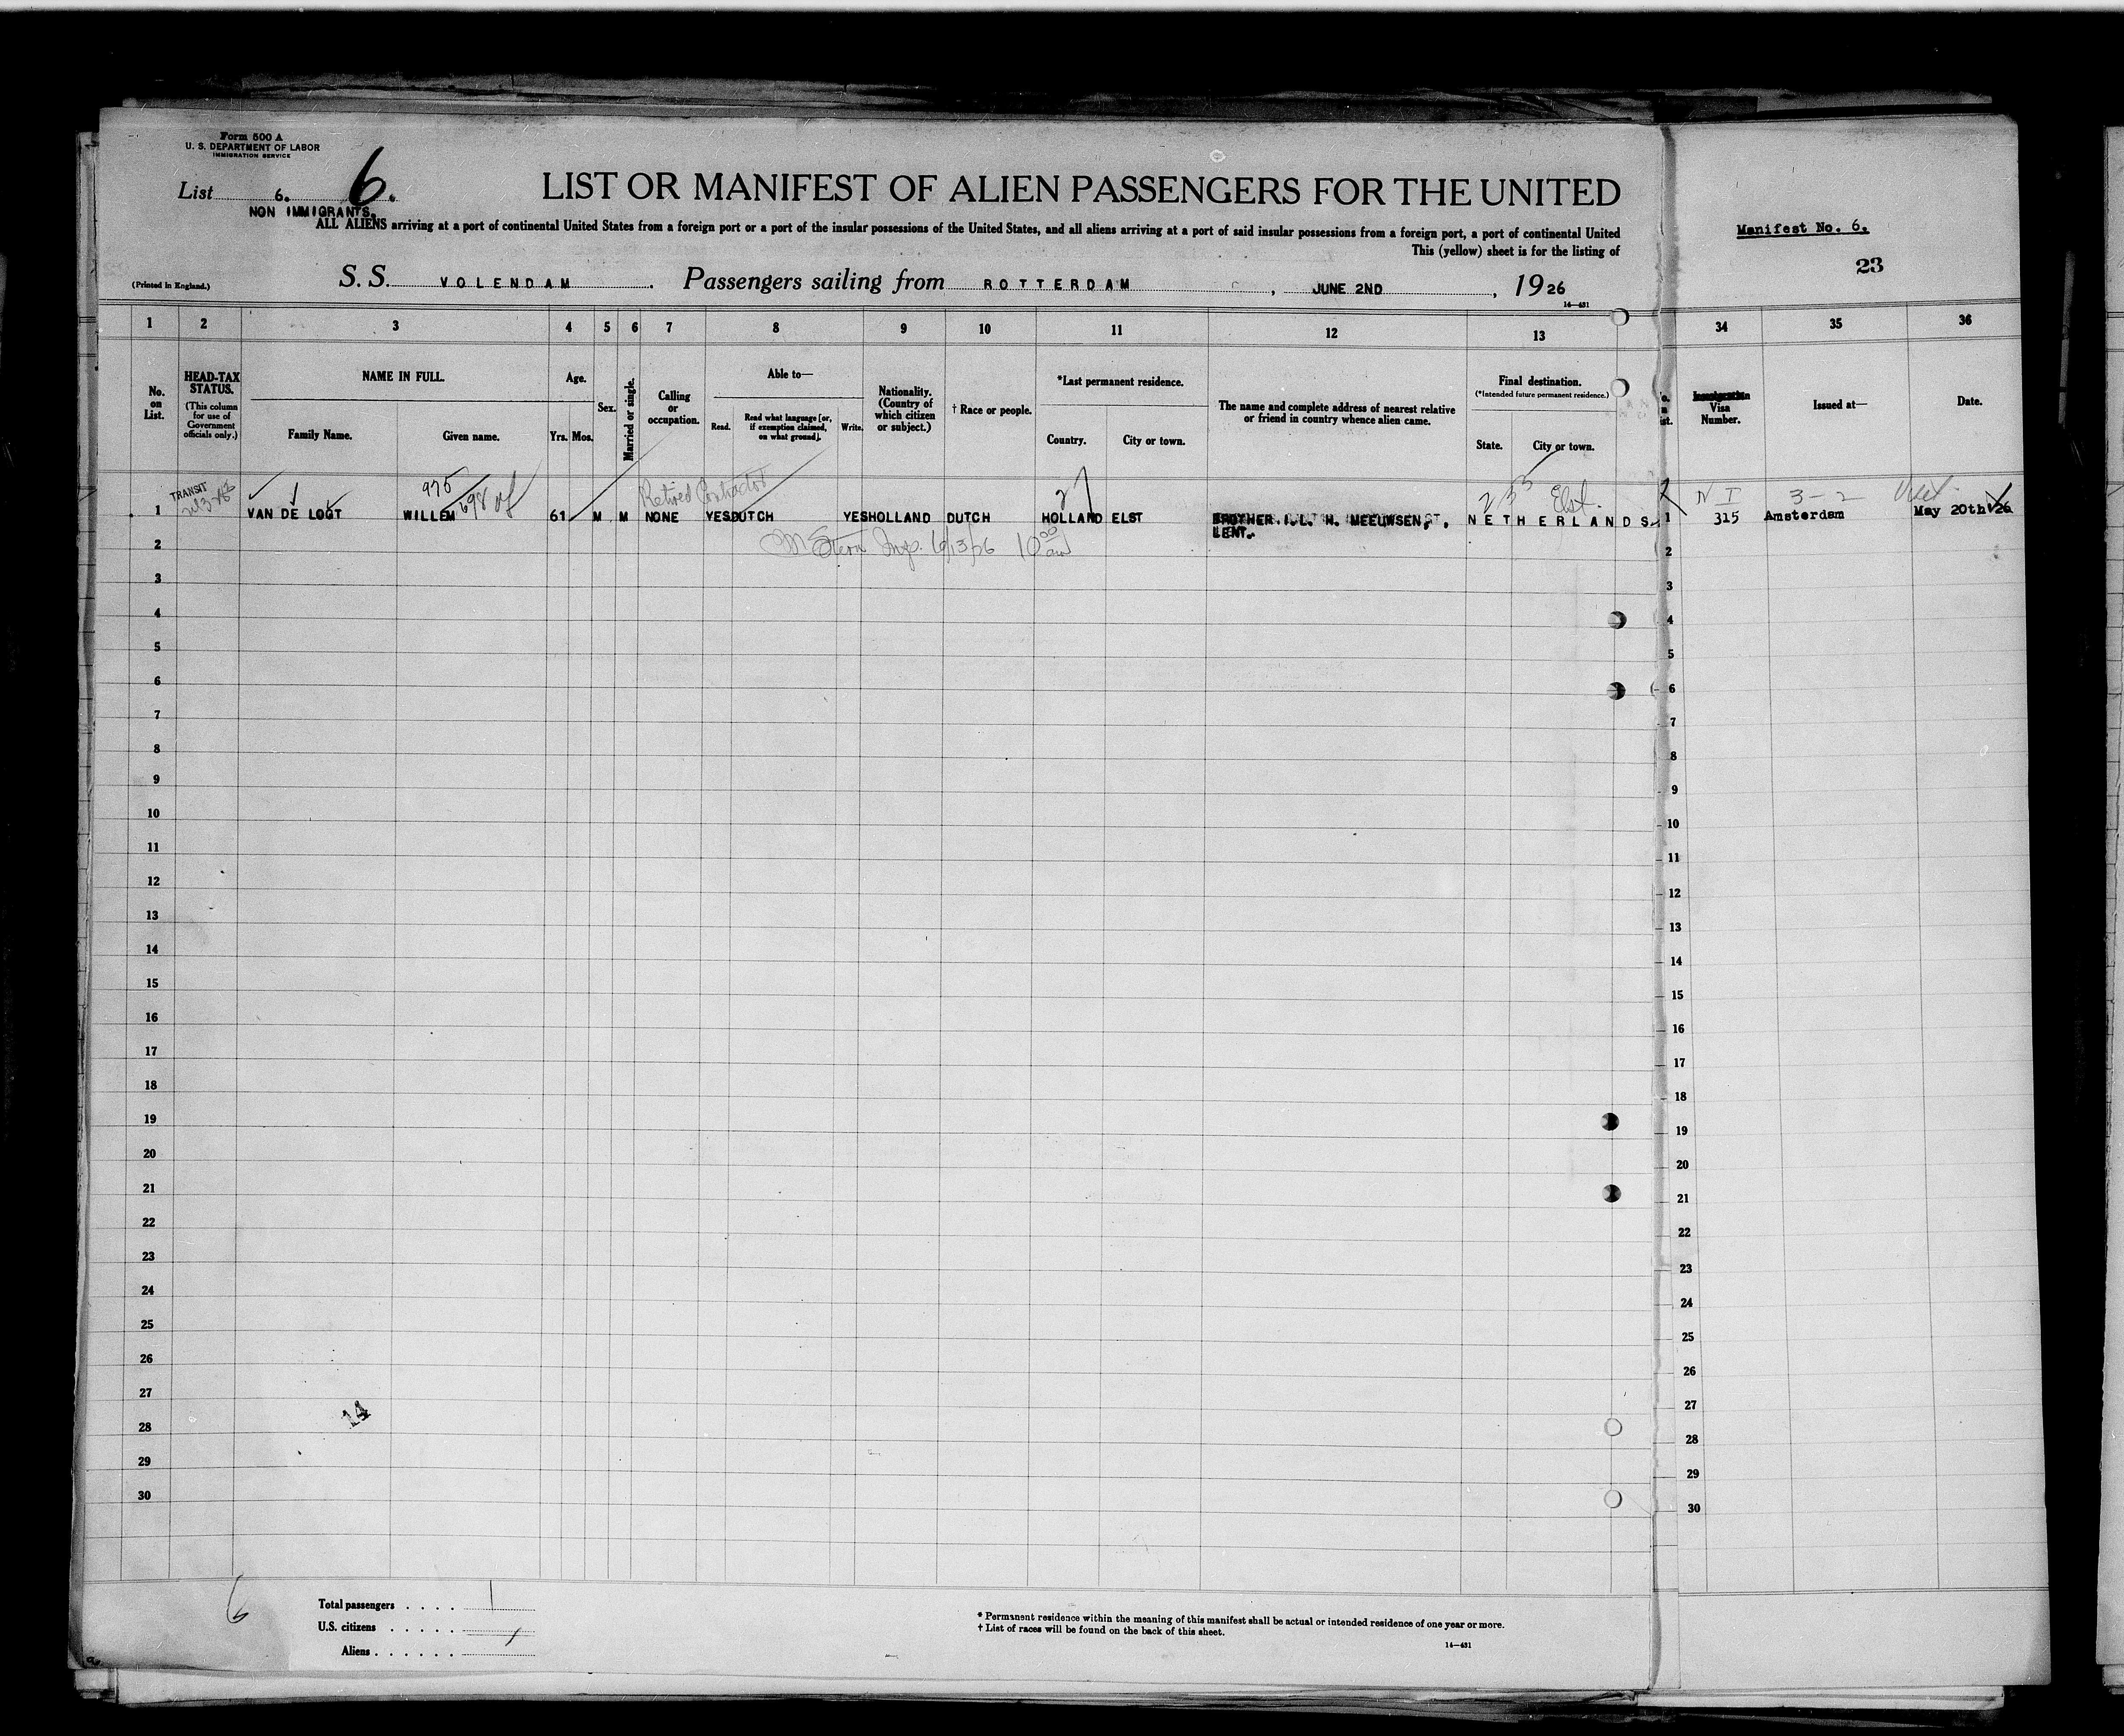 Form 500 A
U. S. DEPARTMENT OF LABOR
IMMIGRATION SERVICE
List 6. 6.
NON IMMIGRANTS.
LIST OR MANIFEST OF ALIEN PASSENGERS FOR THE UNITED
ALL ALIENS arriving at a port of continental United States from a foreign port or a port of the insular possessions of the United States, and all aliens arriving at a port of said insular possessions from a foreign port, a port of continental United
This (yellow) sheet is for the listing of
(Printed in England.)
S. S. VOLENDAM. Passengers sailing from ROTTERDAM, JUNE 2ND, 1926
14—431
Manifest No. 6.
23
1 2 3 4 5 6 7 8 9 10 11 12 13 34 35 36
No. on List.
HEAD-TAX STATUS.
(This column for use of Government officials only.)
NAME IN FULL.
Family Name. Given name.
Age.
Yrs. Mos.
Sex.
Married or single.
Calling or occupation.
Able to—
Read. Read what language [or, if exemption claimed, on what ground]. Write.
Nationality. (Country of which citizen or subject.)
† Race or people.
*Last permanent residence.
Country. City or town.
The name and complete address of nearest relative or friend in country whence alien came.
Final destination.
(*Intended future permanent residence.)
State. City or town.
Visa Number.
Issued at—
Date.
TRANSIT
975
Retired Contractor
27
Elst.
N I
3-2
1 VAN DE LOGT WILLEM 61 M M NONE YES DUTCH YES HOLLAND DUTCH HOLLAND ELST BROTHER.I.L. H. MEEUWSEN, NETHERLANDS. 1 315 Amsterdam May 20th 26
LENT.
Stern Insp. 6/13/26 10 00 am
2 2
3 3
4 4
5 5
6 6
7 7
8 8
9 9
10 10
11 11
12 12
13 13
14 14
15 15
16 16
17 17
18 18
19 19
20 20
21 21
22 22
23 23
24 24
25 25
26 26
27 27
14
28 28
29 29
30 30
6
Total passengers . . . . 1
U.S. citizens . . . . .
Aliens . . . . . .
* Permanent residence within the meaning of this manifest shall be actual or intended residence of one year or more.
† List of races will be found on the back of this sheet.
14—431